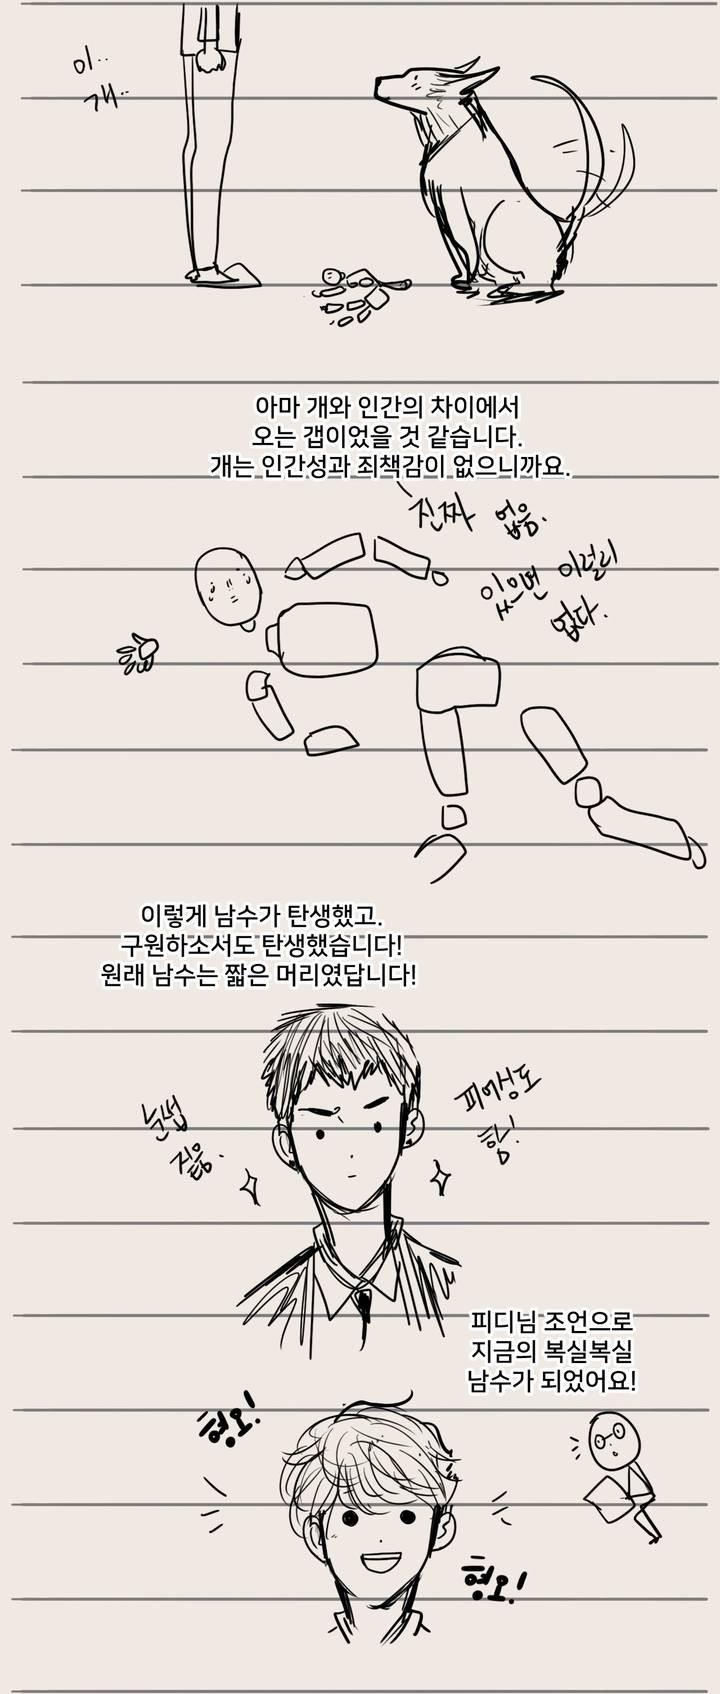 이..
개..
아마 개와 인간의 차이에서
오는 갭이었을 것 같습니다.
개는 인간성과 죄책감이 없으니까요.
진짜 없음.
있으면 이럴리
없다.
이렇게 남수가 탄생했고.
구원하소서도 탄생했습니다!
원래 남수는 짧은 머리였답니다!
눈썹
짙음.
피어싱도
함!
피디님 조언으로
지금의 복실복실
남수가 되었어요!
형오!
형오!